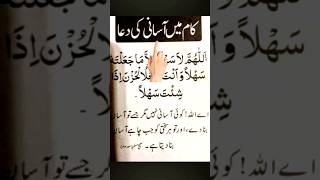 کام میں آسانی کی دعا
اَللّٰهُمَّ لَا سَهْلَ اِلَّا مَا جَعَلْتَهٗ
سَهْلًا وَّاَنْتَ تَجْعَلُ الْحُزْنَ اِذَا
شِئْتَ سَهْلًا۔
اے اللہ! کوئی آسانی نہیں مگر جسے تو آسان
بنا دے، اور تو ہر سختی کو جب چاہے آسان
بنا دیتا ہے۔